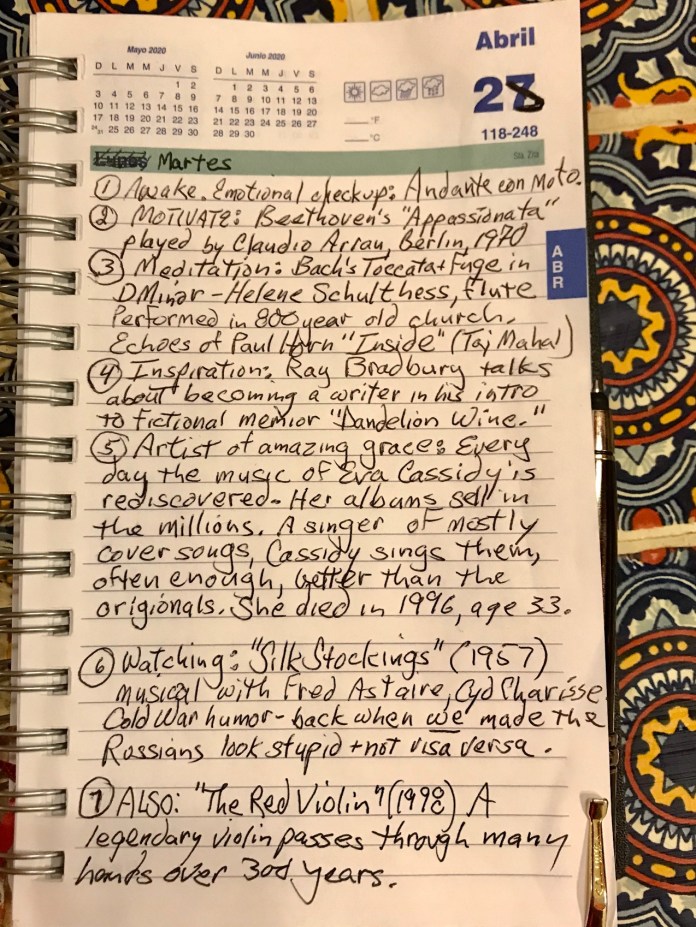 Mayo 2020
D L M M J V S
1 2
3 4 5 6 7 8 9
10 11 12 13 14 15 16
17 18 19 20 21 22 23
24/31 25 26 27 28 29 30
Junio 2020
D L M M J V S
1 2 3 4 5 6
7 8 9 10 11 12 13
14 15 16 17 18 19 20
21 22 23 24 25 26 27
28 29 30
°F
°C
Abril
27
118-248
Sta. Zita
Martes
① Awake. Emotional checkup: Andante con Moto.
② MOTIVATE: Beethoven's "Appassionata"
played by Claudio Arrau, Berlin, 1970
③ Meditation: Bach's Toccata + Fuge in
D Minor - Helene Schulthess, flute
Performed in 800 year old church.
Echoes of Paul Horn "Inside" (Taj Mahal)
④ Inspiration: Ray Bradbury talks
about becoming a writer in his intro
to fictional memior "Dandelion Wine."
⑤ Artist of amazing grace: Every
day the music of Eva Cassidy is
rediscovered. Her albums sell in
the millions. A singer of mostly
cover songs, Cassidy sings them,
often enough, better than the
origionals. She died in 1996, age 33.
⑥ Watching: "Silk Stockings" (1957)
musical with Fred Astaire, Cyd Charisse
Cold War humor - back when we made the
Russians look stupid + not visa versa.
⑦ ALSO: "The Red Violin" (1998) A
legendary violin passes through many
hands over 300 years.
A
B
R